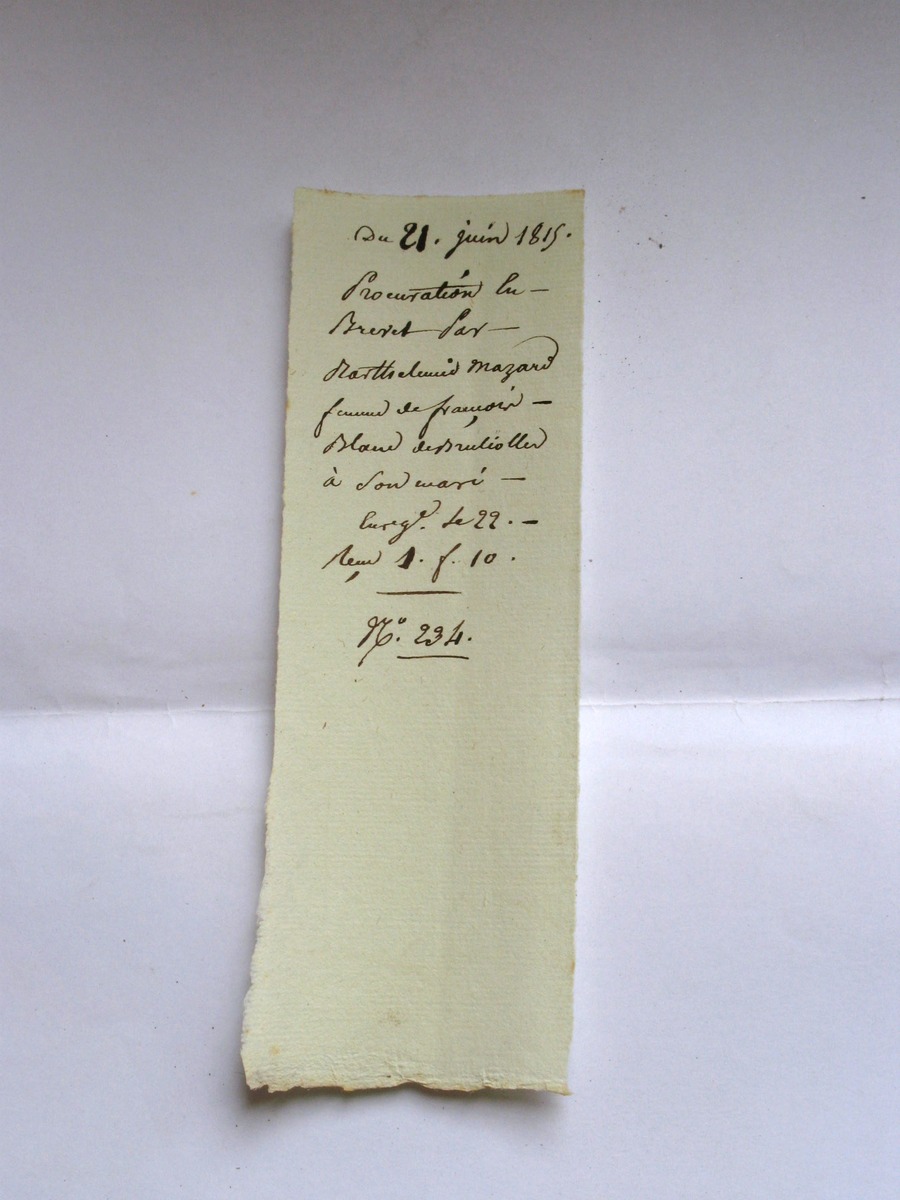 Du 21. juin 1815.
Procuration En —
Brevet Par —
Barthelemie Mazard
femme de françois —
Blanc de Brulioller
à Son mari —
Enregé. le 22. —
Reçu 1. f. 10.
N°. 234.